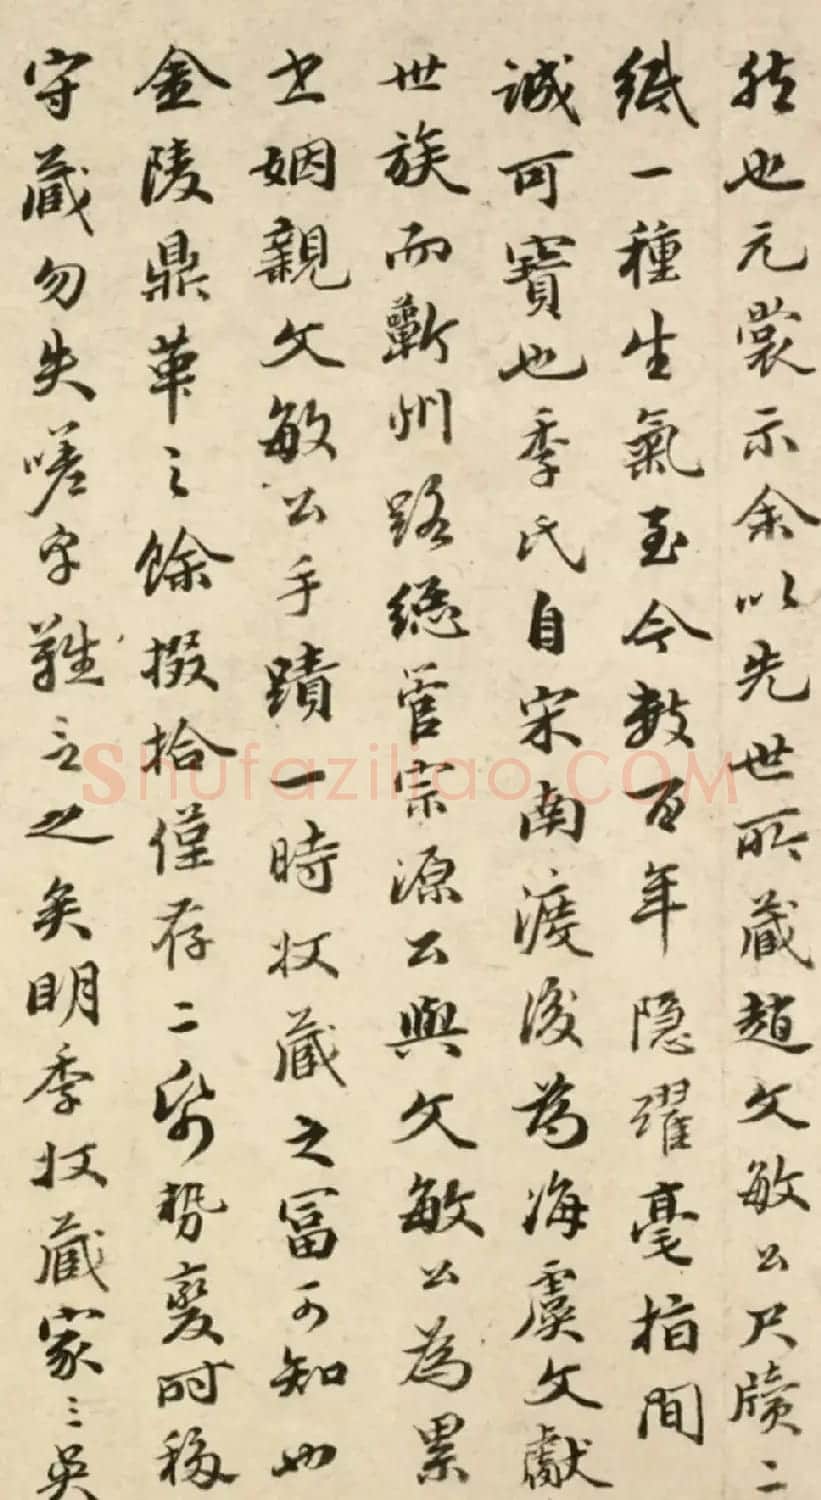 也元裳示余以先世所藏趙文敏公尺牘二
紙一種生氣至今數百年隐耀毫指間
誠可寶也季氏自宋南渡後為海虞文獻
世族而蘄州路總管宗源公與文敏公為累
世姻親文敏公手蹟一時收藏之富可知也
金陵鼎革之餘掇拾僅存二紙勢變時移
守藏勿失嗟乎難言之矣明季收藏家三吴
Shufaziliao.COM